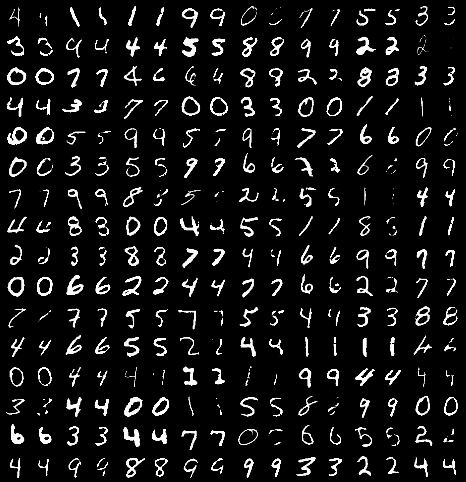 4 4 1 1 1 1 9 9 0 0 7 7 5 5 3 3
3 3 9 4 4 4 5 5 8 8 9 9 2 2 2
0 0 7 7 4 6 6 4 8 8 2 2 8 8 3 3
4 4 3 3 7 7 0 0 3 3 0 0 1 1 1 1
0 0 5 5 9 9 5 5 9 9 7 7 6 6 0 0
0 0 3 3 5 5 9 9 6 6 2 2 6 9 9
7 7 9 9 8 3 5 2 2 5 5 1 1 4 4
4 4 8 3 0 0 4 4 5 5 1 1 8 5 1 1
2 2 3 3 8 8 7 7 4 4 6 6 9 9 7 7
0 0 6 6 2 2 4 4 7 7 6 6 2 2 7 7
7 7 7 5 5 7 7 5 5 4 4 3 3 8 8
4 4 6 6 5 5 2 2 4 4 1 1 1 1 4 4
0 0 4 4 4 4 1 1 1 1 9 9 4 4 4 4
3 3 4 4 0 0 1 1 5 5 8 8 9 9 0 0
6 6 3 3 4 4 7 7 0 6 6 5 5 2 2
4 4 9 9 8 8 9 9 9 9 3 3 2 2 4 4